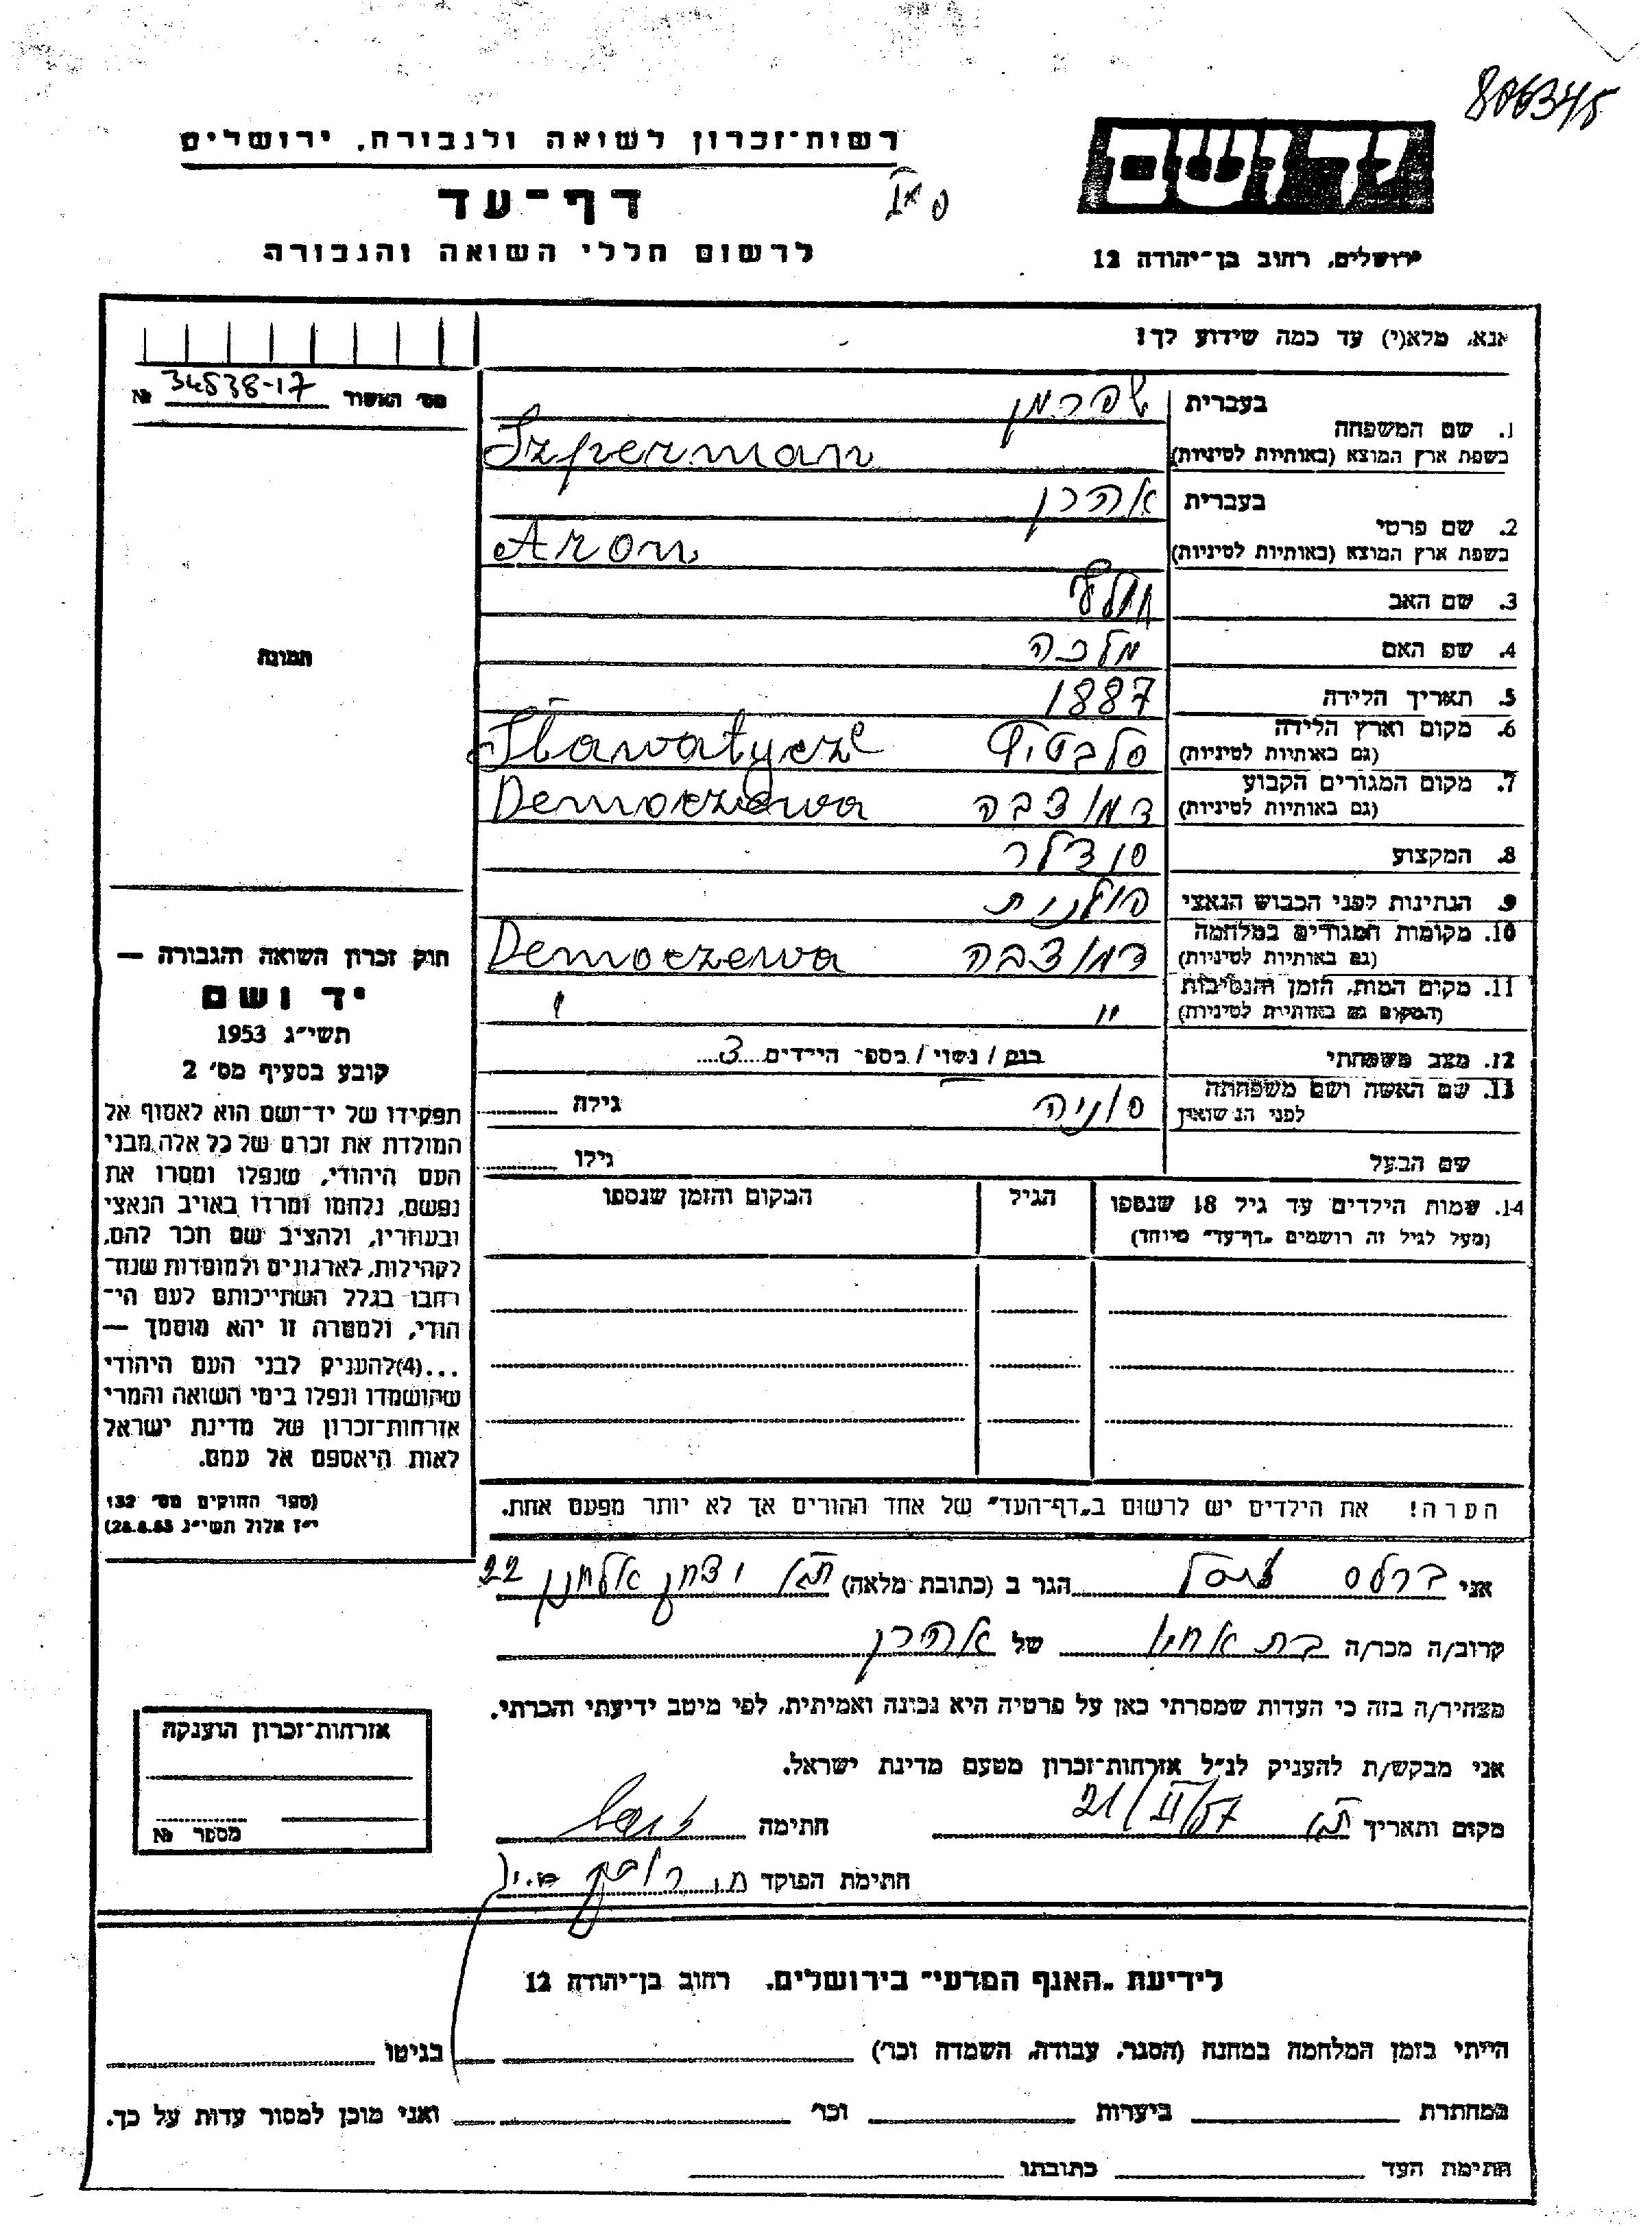 806345
רשות־זכרון לשואה ולגבורה, ירושלים
יד ושם
דף־עד
לרשום חללי השואה והגבורה
ירושלים, רחוב בן־יהודה 12
אנא, מלא(י) עד כמה שידוע לך!
מס' האשור 34538-17 №
בעברית שפרמן
1. שם המשפחה
בשפת ארץ המוצא (באותיות לטיניות) Szperman
בעברית אהרן
2. שם פרטי
בשפת ארץ המוצא (באותיות לטיניות) Aron
3. שם האב
4. שם האם מלכה
תמונה
5. תאריך הלידה 1887
6. מקום וארץ הלידה
(גם באותיות לטיניות) סלבטיץ Sławatycze
7. מקום המגורים הקבוע
(גם באותיות לטיניות) דמוצבה Democzewa
8. המקצוע סנדלר
9. הנתינות לפני הכבוש הנאצי פולנית
10. מקומות המגורים במלחמה
(גם באותיות לטיניות) דמוצבה Democzewa
11. מקום המות, הזמן והנסיבות
(המקום גם באותיות לטיניות) "
12. מצב משפחתי רווק / נשוי / מספר הילדים 3
13. שם האשה ושם משפחתה
לפני הנישואין סוניה גילה
שם הבעל גילו
14. שמות הילדים עד גיל 18 שנספו הגיל המקום והזמן שנספו
(מעל לגיל זה רושמים „דף־עד" מיוחד)
חוק זכרון השואה והגבורה —
יד ושם
תשי"ג 1953
קובע בסעיף מס' 2
תפקידו של יד־ושם הוא לאסוף אל
המולדת את זכרם של כל אלה מבני
העם היהודי, שנפלו ומסרו את
נפשם, נלחמו ומרדו באויב הנאצי
ובעוזריו, ולהציב שם וזכר להם,
לקהילות, לארגונים ולמוסדות שנח־
רבו בגלל השתייכותם לעם הי־
הודי, ולמטרה זו יהא מוסמך —
...(4) להעניק לבני העם היהודי
שהושמדו ונפלו בימי השואה והמרי
אזרחות־זכרון של מדינת ישראל
לאות היאספם אל עמם.
(ספר החוקים מס' 132
י"ז אלול תשי"ג 28.8.53)
הערה! את הילדים יש לרשום ב„דף־העד" של אחד ההורים אך לא יותר מפעם אחת.
אני ברלס הגר ב (כתובת מלאה) ת"א יצחק אלחנן 22
קרוב/ה מכר/ה בת אחיו של אהרן
מצהיר/ה בזה כי העדות שמסרתי כאן על פרטיה היא נכונה ואמיתית, לפי מיטב ידיעתי והכרתי.
אני מבקש/ת להעניק לנ"ל אזרחות־זכרון מטעם מדינת ישראל.
מקום ותאריך ת"א 21/II/57 חתימה
חתימת הפוקד
אזרחות־זכרון הוענקה
מספר №
לידיעת „האגף המדעי" בירושלים, רחוב בן־יהודה 12
הייתי בזמן המלחמה במחנה (הסגר, עבודה, השמדה וכו') בגיטו
במחתרת ביערות וכו' ואני מוכן למסור עדות על כך.
חתימת העד כתובתו